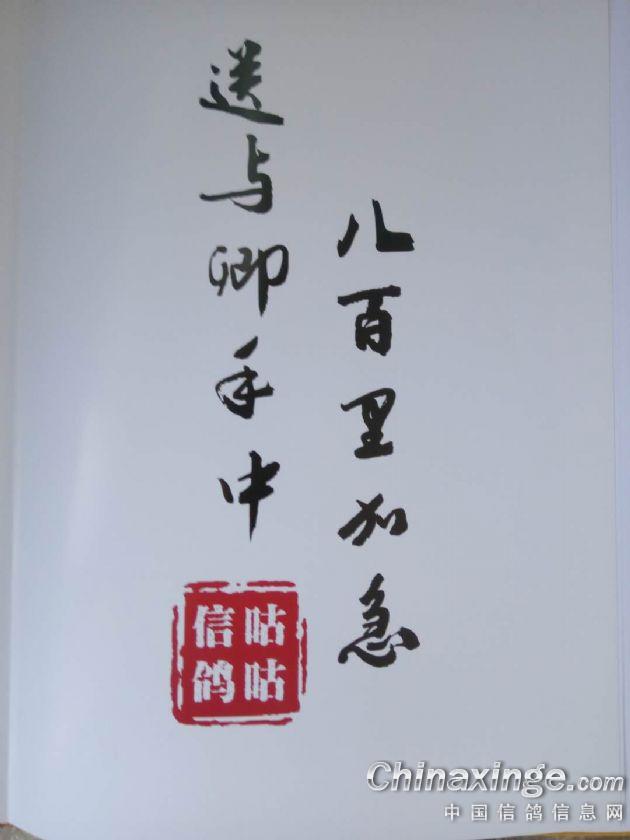 八百里加急
送与卿手中
咕咕
信鸽
Chinaxinge.com
中国信鸽信息网